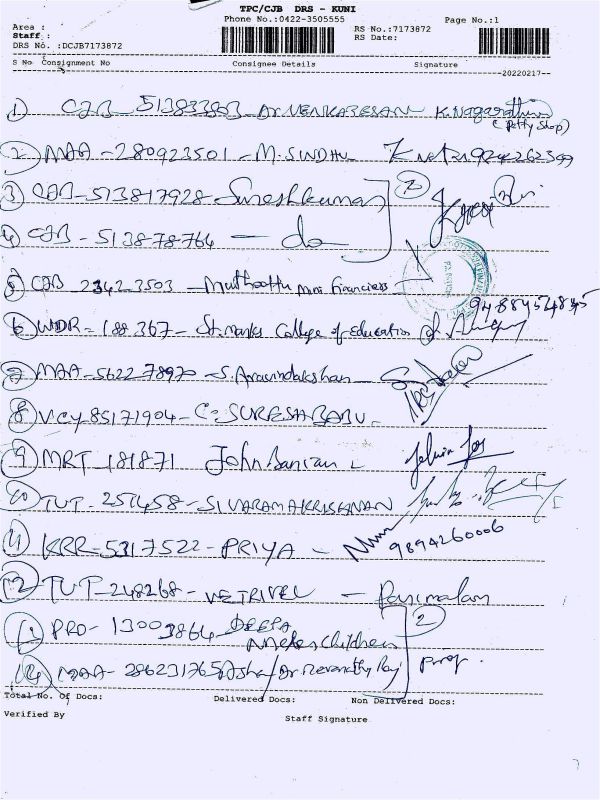 TPC/CJB DRS - KUNI
Phone No.:0422-3505555
Page No.:1
Area :
Staff :
RS No.:7173872
RS Date:
DRS No. :DCJB7173872
S No Consignment No Consignee Details Signature
20220217
1 CJB 513833803 Dr. VENKATESAN K. Nagarathin
(Petty Shop)
2 MAA - 280923501 - M. SINDHU
3 CJB - 513817928 Sureshkumar 2
4 CJB - 513878764 - do
5 CJB 2342 3503 - Muthoottu mini Financiers
9488454845
6 WDR - 188367 - St. marks College of Education
7 MAA - 562278970 - S. Aravindakshan
8 VCY 85171904 - C. SURESH BABU
9 MRT 181871 John Banian
10 TUT - 257458 - SIVARAMAKRISHNAN
11 KRR - 5317522 - PRIYA -
9894260006
12 TUT - 248268 - VETRIVEL - Parimalam
13 PRO - 13003864 DEEPA 2
14 MAA - 286231765
Total No. Of Docs: Delivered Docs: Non Delivered Docs:
Verified By
Staff Signature